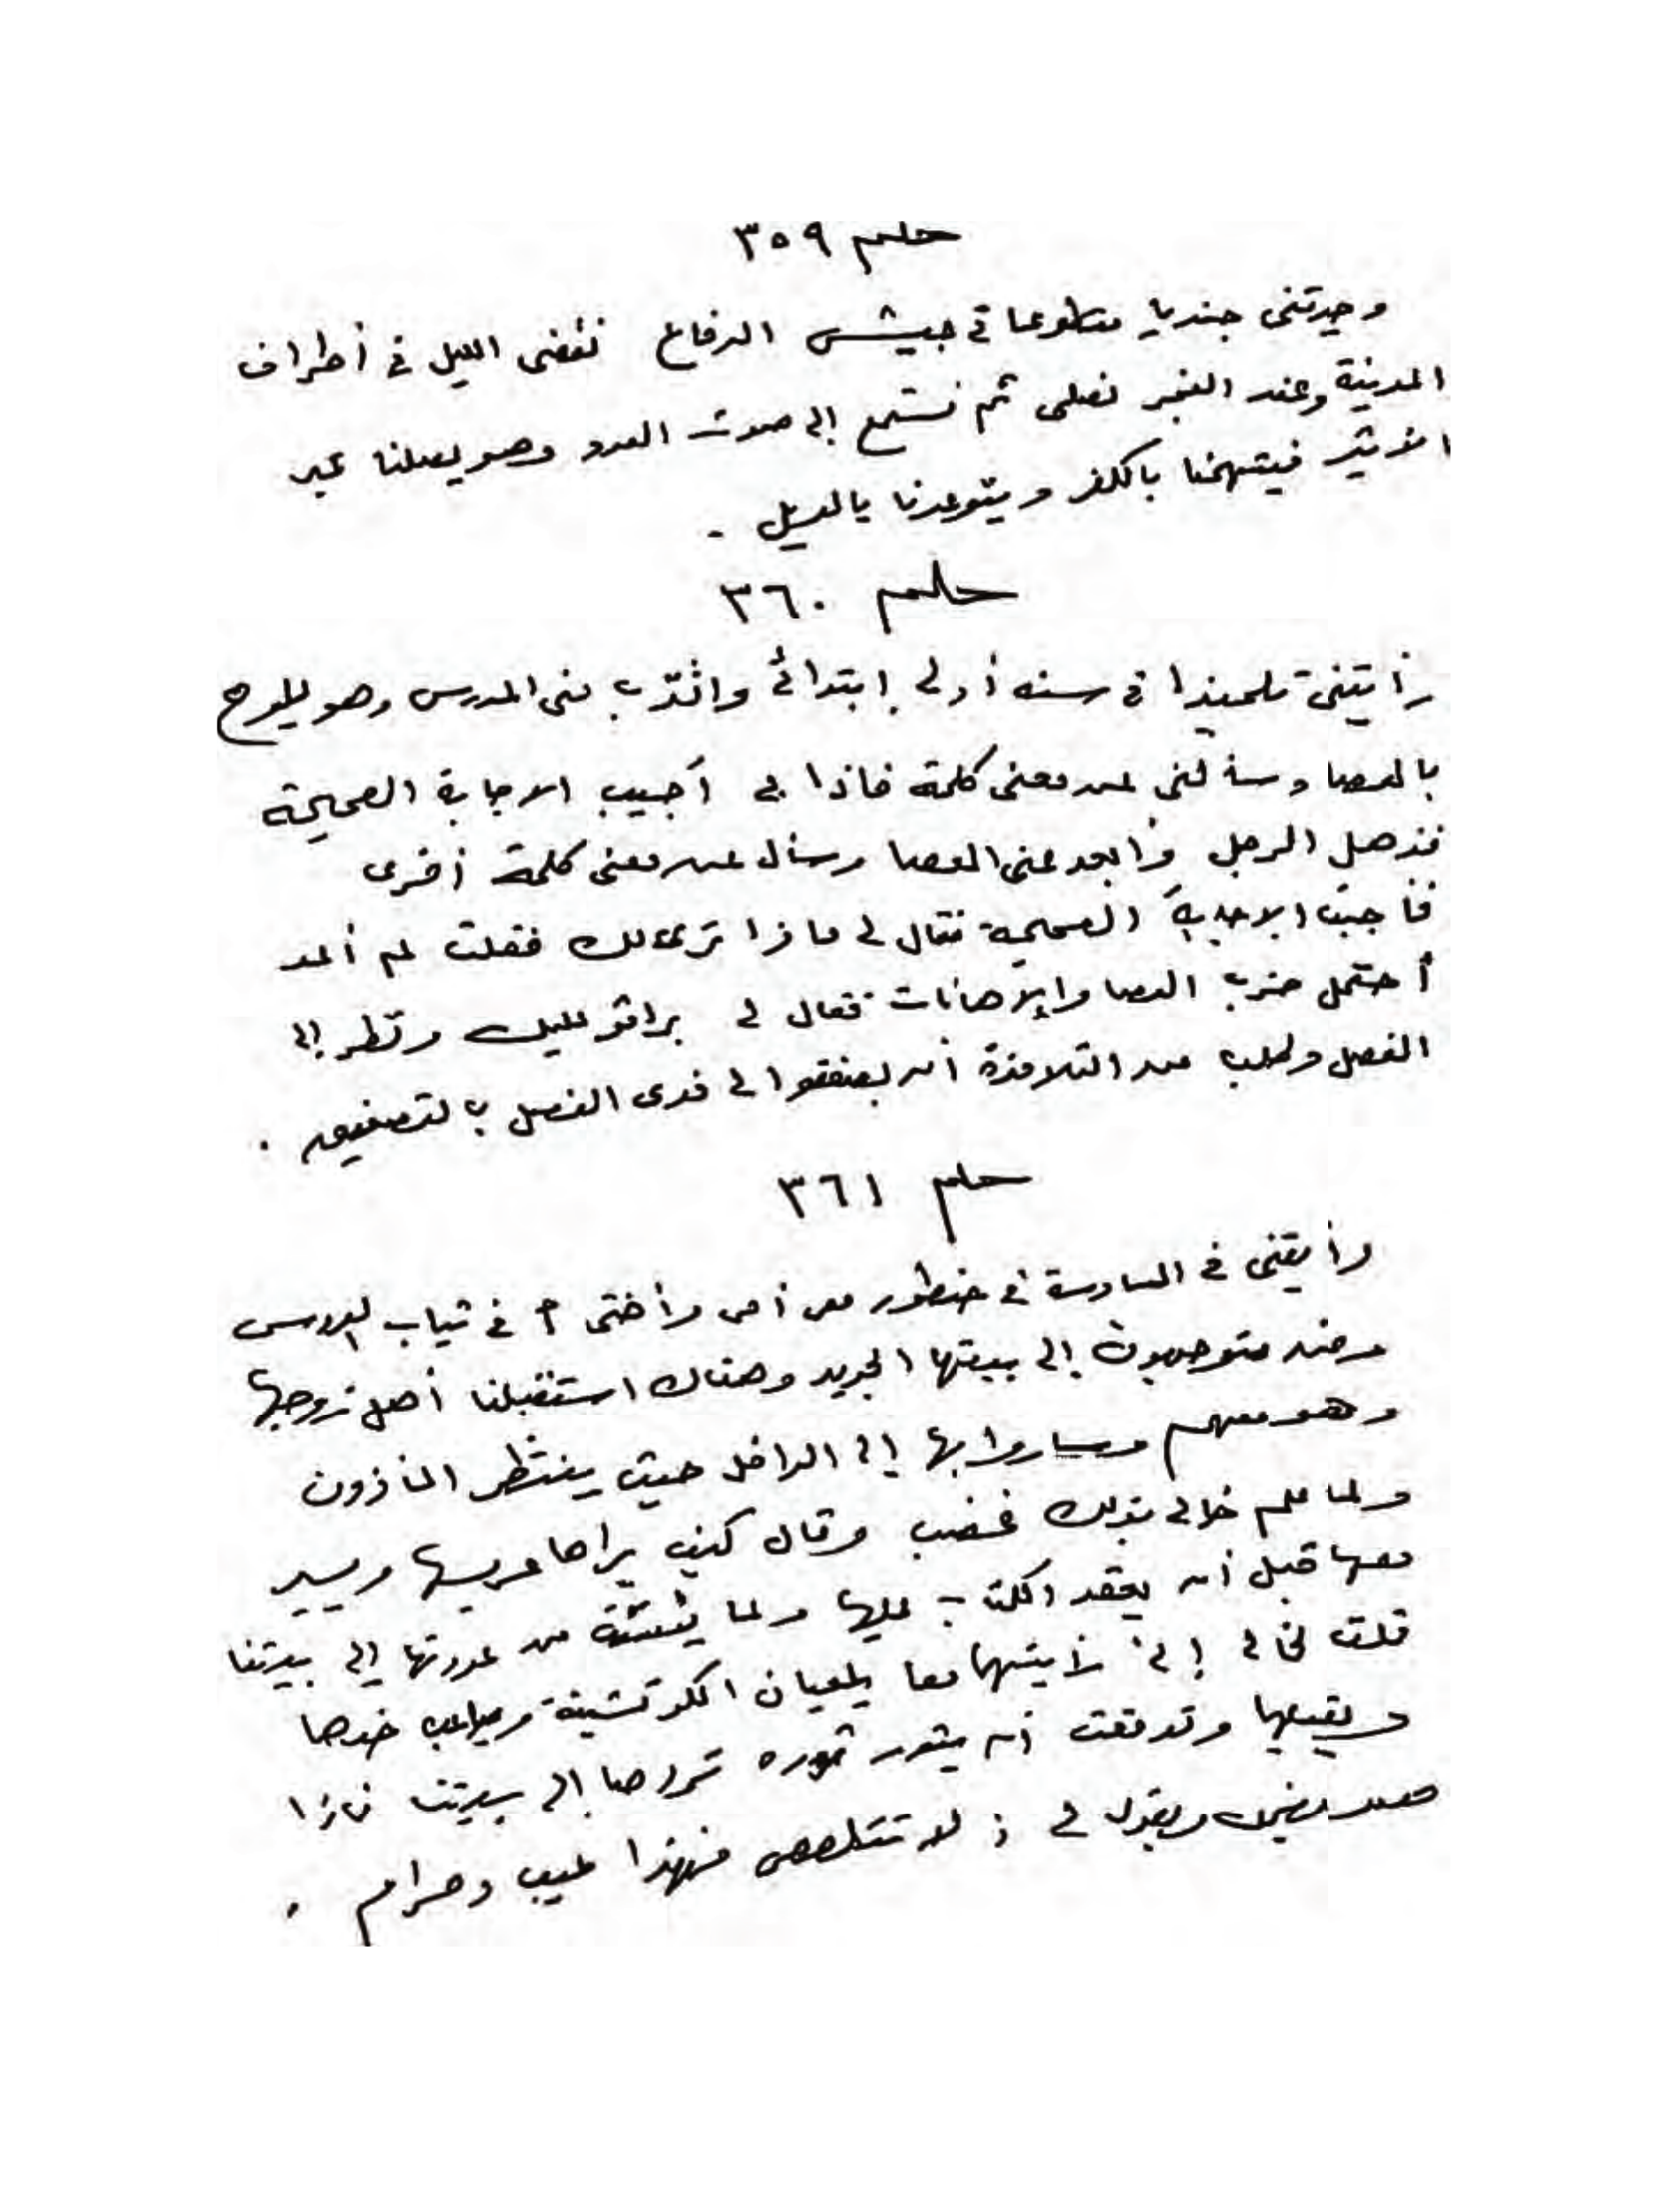 حلم ٣٥٩
وجدتنى جنديا متطوعا فى جيش الدفاع نقضى الليل فى أطراف
المدينة وعند الفجر نصلى ثم نستمع إلى صوت العدو وهو يصلنا عبر
الأثير فيتهمنا بالكفر ويتوعدنا بالويل .
حلم ٣٦٠
رأيتنى تلميذا فى سنه أولى إبتدائى واقترب منى المدرس وهو يلوح
بالعصا وسألنى عن معنى كلمة فاذا بى أجيب الاجابة الصحيحة
فذهل الرجل وأبعد عنى العصا وسأل عن معنى كلمة أخرى
فأجبت الاجابة الصحيحة فقال لى ماذا جرى لك فقلت لم أعد
أحتمل ضرب العصا والإهانات فقال لى برافو عليك ونظر إلى
الفصل وطلب من التلامذة أن يصفقوا لى فدوى الفصل بالتصفيق .
حلم ٣٦١
رأيتنى فى السادسة فى حنطور مع أمى وأختى فى ثياب العروس
ونحن متوجهون إلى بيتها الجديد وهناك استقبلنا أهل زوجها
وهو معهم وساروا بها إلى الداخل حيث ينتظر المأذون
ولما علم خالى بذلك غضب وقال كيف يراها عريسها ويسير
معها قبل أن يعقد الكتاب عليها ولما من عودتها إلى بيتنا
قلت لخالى إنى رأيتهما معا يلعبان الكوتشينة ويداعب خدها
ويقبلها وتوقعت أن يثور ثوره تردها إلى بيتنا فاذا
ويقول لى : لا تتلصص فهذا عيب وحرام .